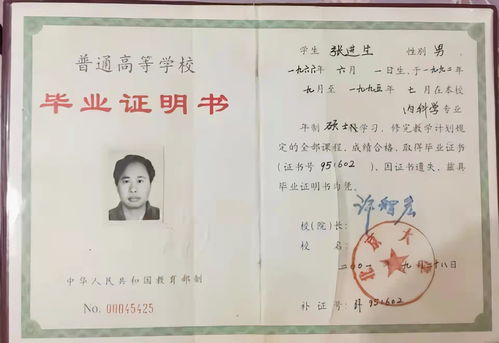 普通高等学校
毕业证明书
中华人民共和国教育部制
No. 00045425
学生 张进生 性别 男,
一九六六年 六月 一日生,于一九九二年
九月至一九九五年 七月在本校
内科学专业
年制 硕士 学习,修完教学计划规
定的全部课程,成绩合格,取得毕业证书
(证书号 951602 ),因证书遗失,兹具
毕业证明书为凭。
校(院)长:
许智宏
校 名:
北京大学
二00一年九月二十八日
补 证 号: 补 951602